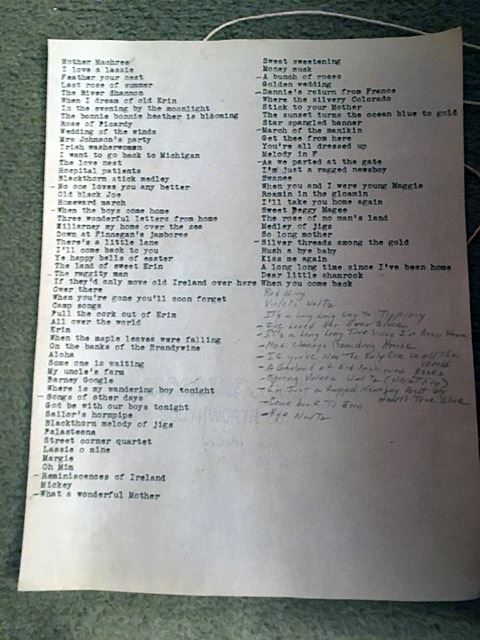 Mother Machree
I love a lassie
Feather your nest
Last rose of summer
The River Shannon
When I dream of old Erin
In the evening by the moonlight
The bonnie bonnie heather is blooming
Rose of Picardy
Wedding of the winds
Mrs Johnson's party
Irish washerwoman
I want to go back to Michigan
The love nest
Hospital patients
Blackthorn stick medley
-No one loves you any better
Old black Joe
Homeward march
-When the boys come home
Three wonderful letters from home
Killarney my home over the sea
Down at Finnegan's jamboree
There's a little lane
I'll come back to you
Ye happy bells of easter
The land of sweet Erin
-The raggity man
If they'd only move old Ireland over here
Over there
When you're gone you'll soon forget
Camp songs
Pull the cork out of Erin
All over the world
Erin
When the maple leaves were falling
On the banks of the Brandywine
Aloha
Some one is waiting
My uncle's farm
Barney Google
Where is my wandering boy tonight
-Songs of other days
God be with our boys tonight
Sailor's hornpipe
Blackthorn melody of jigs
Palasteena
Street corner quartet
Lassie o mine
Margie
Oh Min
-Reminiscences of Ireland
Mickey
-What a wonderful Mother
Sweet sweetening
Money musk
-A bunch of roses
Golden wedding
-Dannie's return from France
Where the silvery Colorado
Stick to your Mother
The sunset turns the ocean blue to gold
Star spangled banner
-March of the manikin
Get thee from here
You're all dressed up
Melody in F
-As we parted at the gate
I'm just a ragged newsboy
Swanee
When you and I were young Maggie
Roamin in the gloamin
I'll take you home again
Sweet Peggy Magee
The rose of no man's land
Medley of jigs
So long mother
-Silver threads among the gold
Rush a bye baby
Kiss me again
A long long time since I've been home
Dear little shamrock
When you come back
Red Wing
Waltz
It's a Long Long Way To Tipperary
-I've Loved Her Ever Since
-It's a Long Long Time Since I've Been Home
-Mrs. Boarding House
-If You're The Only One in all the World
-A Garland of Old Fashioned Roses
-Spring Waltz (Whistling)
-I'm Just a Ragged Newsboy But My Heart's True Blue
-Come Back To Erin
-Rye Waltz